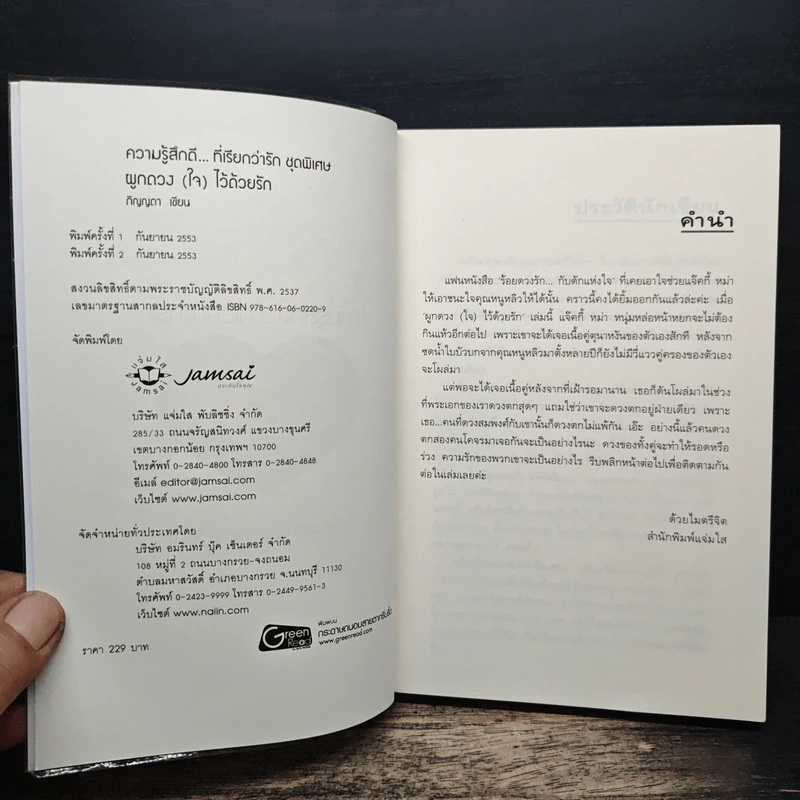 ความรู้สึกดี... ที่เรียกว่ารัก ชุดพิเศษ
ผูกดวง (ใจ) ไว้ด้วยรัก
ภิญญดา เขียน
พิมพ์ครั้งที่ 1 กันยายน 2553
พิมพ์ครั้งที่ 2 กันยายน 2553
สงวนลิขสิทธิ์ตามพระราชบัญญัติลิขสิทธิ์ พ.ศ. 2537
เลขมาตรฐานสากลประจำหนังสือ ISBN 978-616-06-0220-9
จัดพิมพ์โดย
แจ่มใส
Jamsai
Jamsai
ประทับใจคุณ
บริษัท แจ่มใส พับลิชชิ่ง จำกัด
285/33 ถนนจรัญสนิทวงศ์ แขวงบางขุนศรี
เขตบางกอกน้อย กรุงเทพฯ 10700
โทรศัพท์ 0-2840-4800 โทรสาร 0-2840-4848
อีเมล์ editor@jamsai.com
เว็บไซต์ www.jamsai.com
จัดจำหน่ายทั่วประเทศโดย
บริษัท อมรินทร์ บุ๊ค เซ็นเตอร์ จำกัด
108 หมู่ที่ 2 ถนนบางกรวย-จงถนอม
ตำบลมหาสวัสดิ์ อำเภอบางกรวย จ.นนทบุรี 11130
โทรศัพท์ 0-2423-9999 โทรสาร 0-2449-9561-3
เว็บไซต์ www.naiin.com
ราคา 229 บาท
Green
Read
พิมพ์บน
กระดาษถนอมสายตากรีนรี้ด
www.greenread.com
คำนำ
แฟนหนังสือ 'ร้อยดวงรัก... กับดักแห่งใจ' ที่เคยเอาใจช่วยแจ๊คกี้ หม่า
ให้เอาชนะใจคุณหนูหลิวให้ได้นั้น คราวนี้คงได้ยิ้มออกกันแล้วล่ะค่ะ เมื่อ
'ผูกดวง (ใจ) ไว้ด้วยรัก' เล่มนี้ แจ๊คกี้ หม่า หนุ่มหล่อหน้าหยกจะไม่ต้อง
กินแห้วอีกต่อไป เพราะเขาจะได้เจอเนื้อคู่ตุนาหงันของตัวเองสักที หลังจาก
ซดน้ำใบบัวบกจากคุณหนูหลิวมาตั้งหลายปีก็ยังไม่มีวี่แววคู่ครองของตัวเอง
จะโผล่มา
แต่พอจะได้เจอเนื้อคู่หลังจากที่เฝ้ารอมานาน เธอก็ดันโผล่มาในช่วง
ที่พระเอกของเราดวงตกสุดๆ แถมใช่ว่าเขาจะดวงตกอยู่ฝ่ายเดียว เพราะ
เธอ...คนที่ดวงสมพงศ์กับเขานั้นก็ดวงตกไม่แพ้กัน เอ๊ะ อย่างนี้แล้วคนดวง
ตกสองคนโคจรมาเจอกันจะเป็นอย่างไรนะ ดวงของทั้งคู่จะทำให้รอดหรือ
ร่วง ความรักของพวกเขาจะเป็นอย่างไร รีบพลิกหน้าต่อไปเพื่อติดตามกัน
ต่อในเล่มเลยค่ะ
ด้วยไมตรีจิต
สำนักพิมพ์แจ่มใส